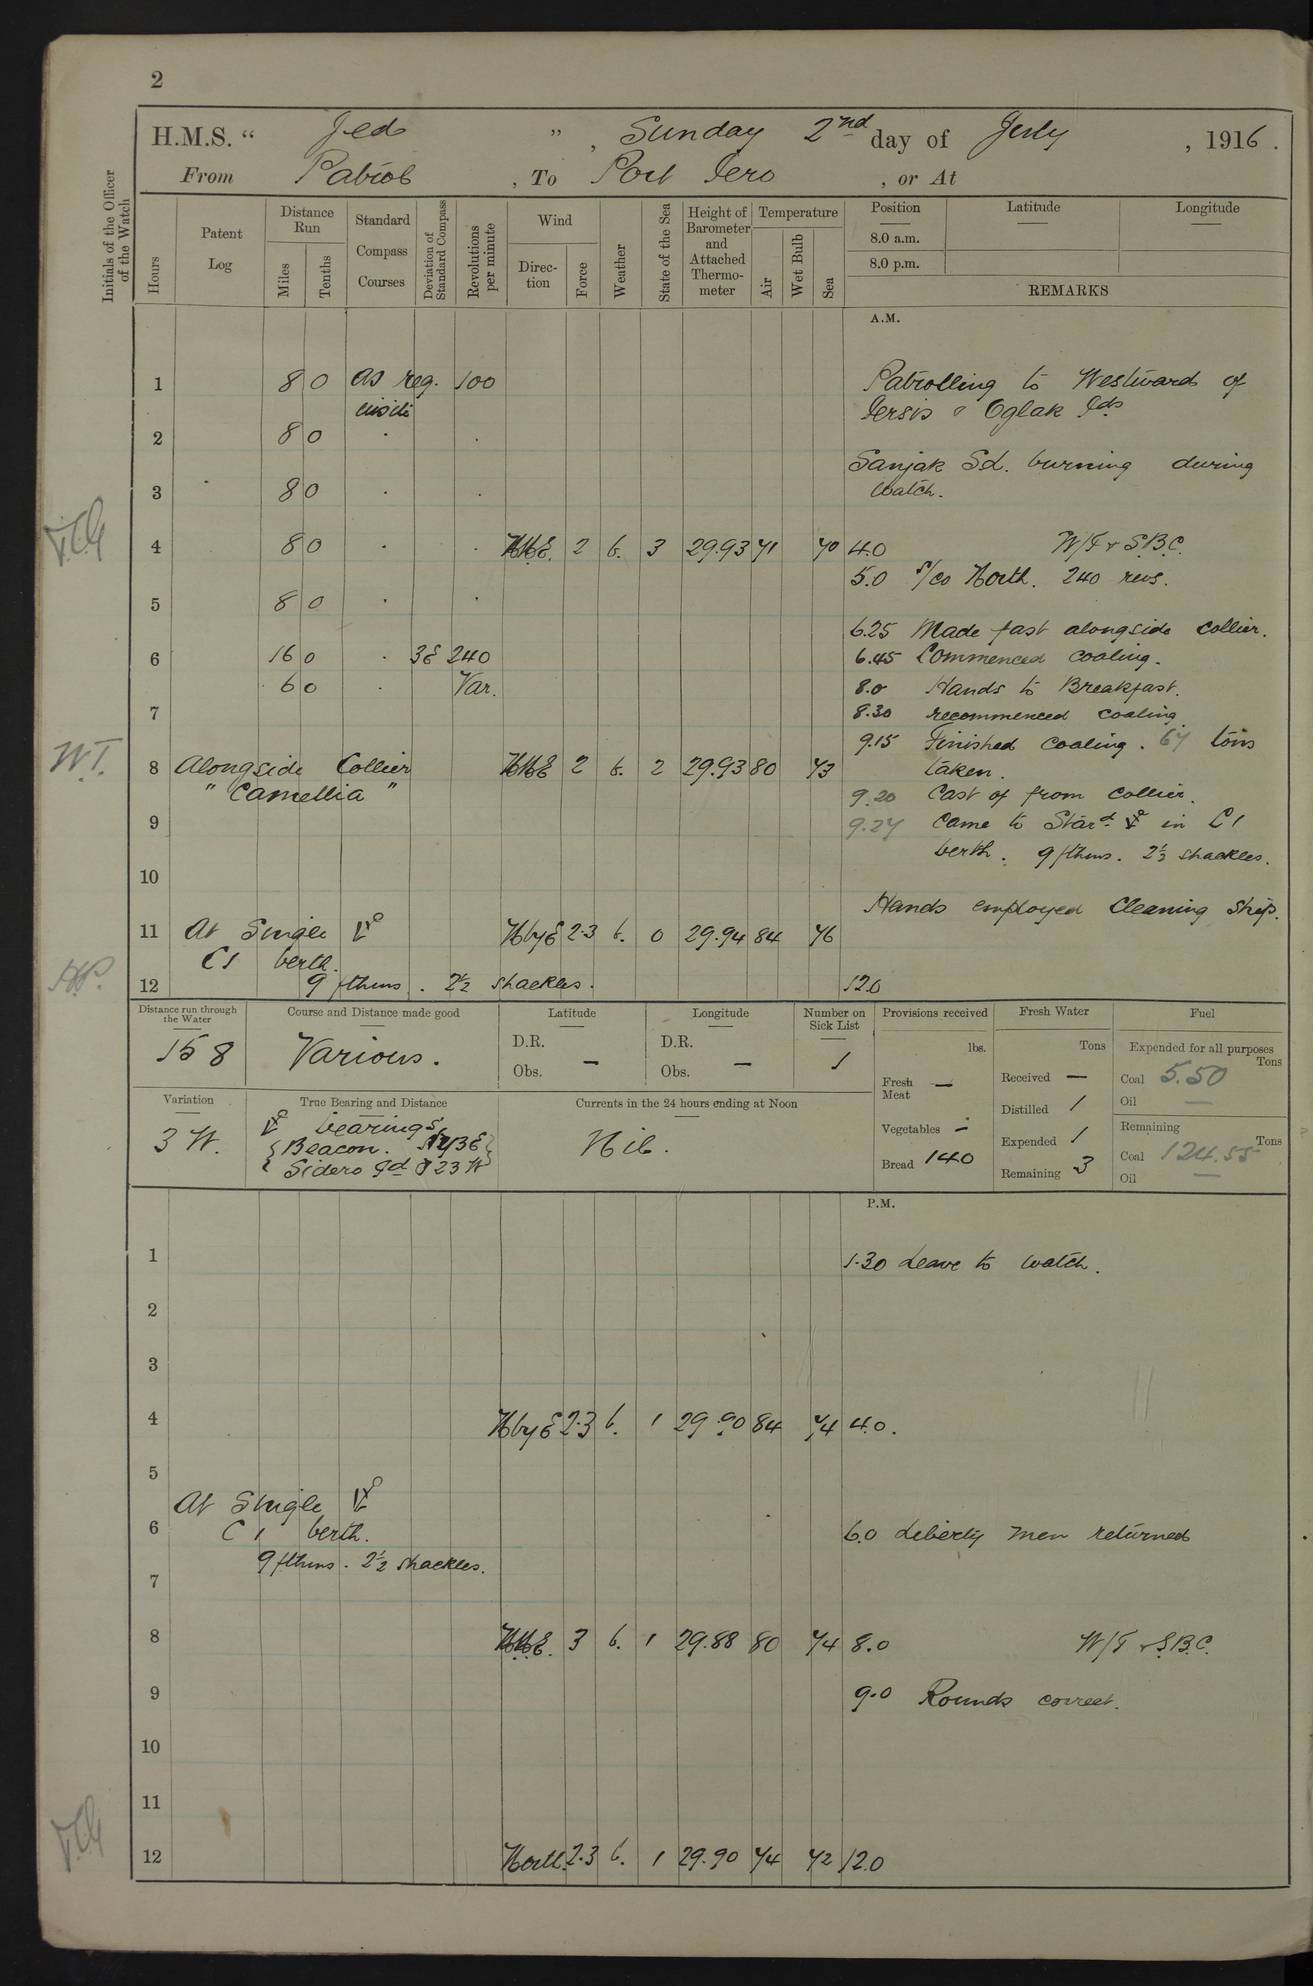 2
H.M.S. “ Jed ”, Sunday 2nd day of July, 1916.
From Patrol, To Port Iero, or At
Initials of the Officer of the Watch
Hours
Patent Log
Distance Run
Miles
Tenths
Standard Compass Courses
Deviation of Standard Compass
Revolutions per minute
Wind
Direction
Force
Weather
State of the Sea
Height of Barometer and Attached Thermometer
Temperature
Air
Wet Bulb
Sea
Position
8.0 a.m.
8.0 p.m.
Latitude
Longitude
REMARKS
A.M.
1 8 0 As reg. 100 Patrolling to Westward of
uisite Iersis & Oglak Ids
2 8 0 . .
Sanjak Sd. burning during
3 8 0 . . watch.
4 8 0 . . NNE. 2 b. 3 29.93 71 70 4.0 W/T & S.B.C.
5.0 s/co North. 240 revs.
5 8 0 . .
6.25 Made fast alongside collier.
6 16 0 . 3E 240 6.45 Commenced coaling.
6 0 . Var. 8.0 Hands to Breakfast.
7 8.30 recommenced coaling
9.15 Finished coaling. 67 tons
W.T. 8 Alongside Collier NNE 2 b. 2 29.93 80 73 taken.
"Camellia" 9.20 Cast of from collier.
9 9.27 Came to Stard ⚓ in C1
berth. 9 fthms. 2½ shackles.
10
Hands employed Cleaning Ship.
11 At Single ⚓ N by E 2.3 b. 0 29.94 84 76
C1 berth.
12 9 fthms. 2½ shackles. 12.0
Distance run through the Water
158
Course and Distance made good
Various.
Latitude
D.R.
Obs. —
Longitude
D.R.
Obs. —
Number on Sick List
1
Provisions received
lbs.
Fresh Meat —
Vegetables —
Bread 140
Fresh Water
Tons
Received —
Distilled 1
Expended 1
Remaining 3
Fuel
Expended for all purposes
Tons
Coal 5.50
Oil —
Remaining
Tons
Coal 124.55
Oil —
Variation
3 W.
True Bearing and Distance
⚓ bearings
Beacon.
Sidero Id
Currents in the 24 hours ending at Noon
Nil.
P.M.
1 1.30 Leave to watch.
2
3
4 N by E 2.3 b. 1 29.90 84 74 4.0.
5
At Single ⚓
6 C1 berth. 6.0 Liberty men returned
9 fthms. 2½ shackles.
7
8 NNE. 3 b. 1 29.88 80 74 8.0 W/T & S.B.C.
9 9.0 Rounds correct.
10
11
12 North. 2.3 b. 1 29.90 74 72 12.0